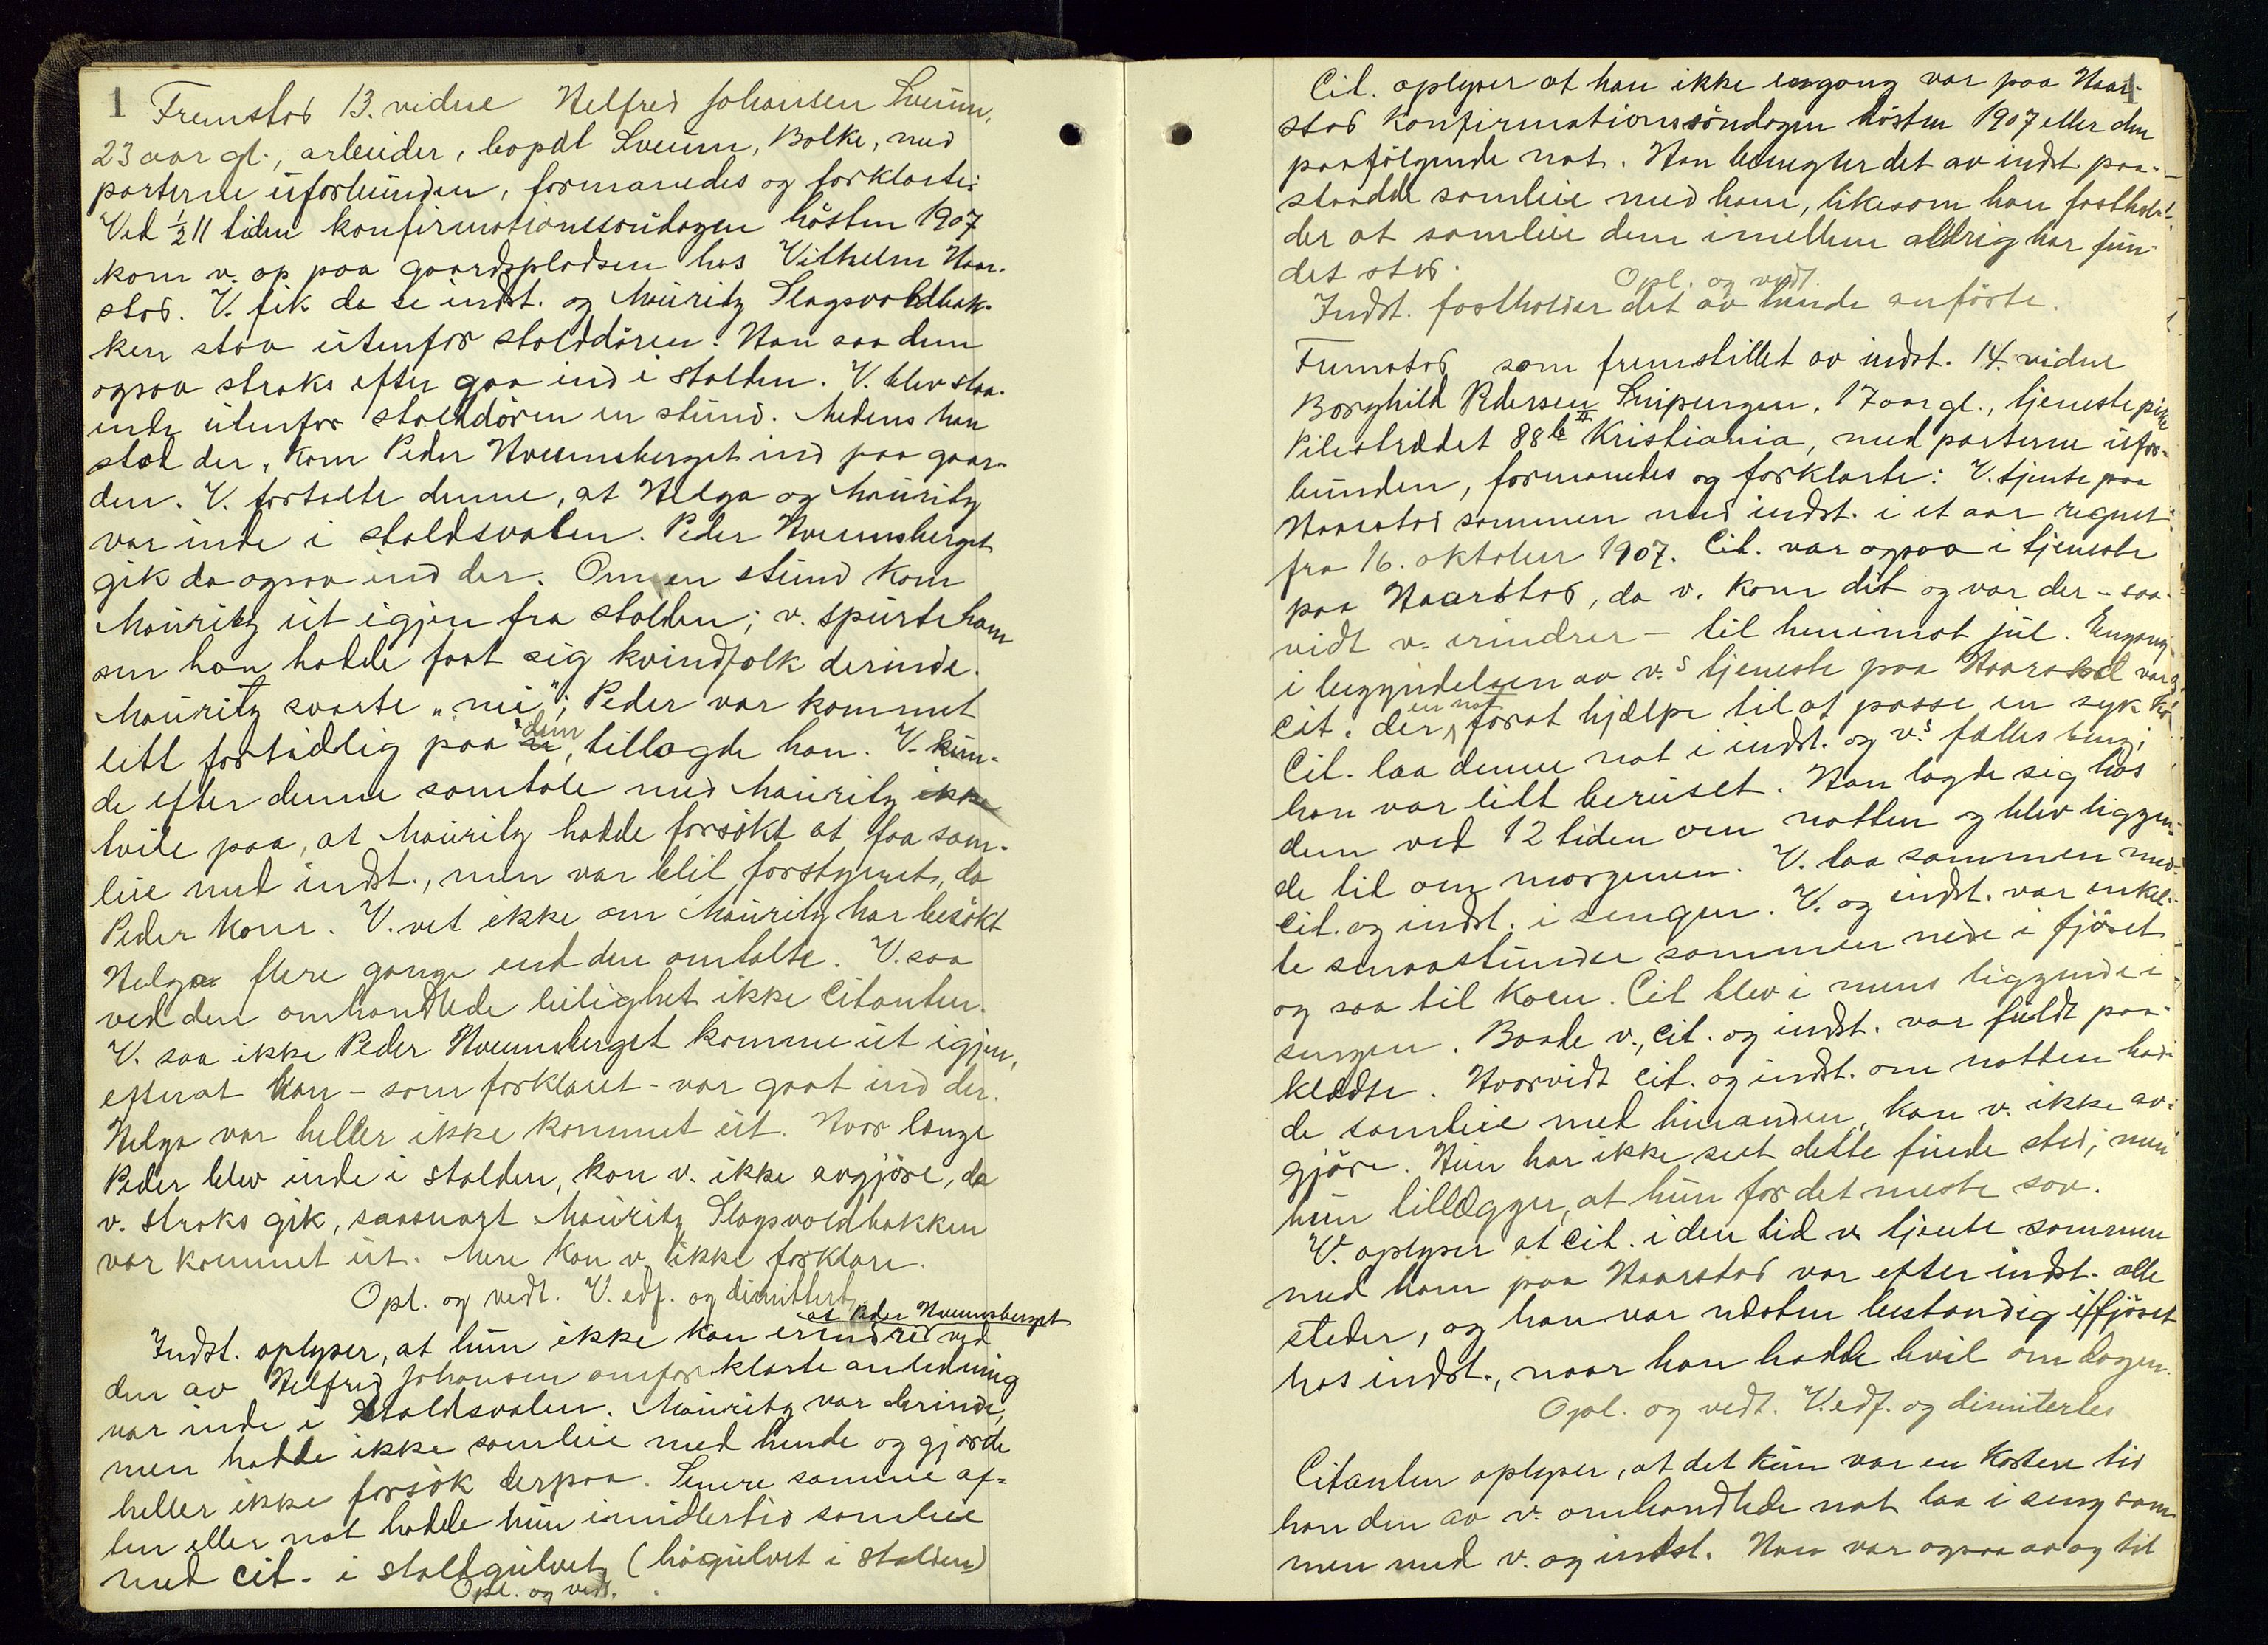 1
Fremstod 13. vidne Helfred Johansen Sveum,
23 aar gl., arbeider, bopæl Sveum, Balke, med
parterne uforbunden, formanedes og forklarte:
Ved ½ 11 tiden konfirmationssøndagen høsten 1907
kom v. op paa gaardspladsen hos Vilhelm Haar-
stad. V. fik da se indst. og Mauritz Slagsvoldbak-
ken staa utenfor stalddøren. Han saa dem
ogsaa straks efter gaa ind i stalden. V. blev staa-
ende utenfor stalddøren en stund. Medens han
stod der, kom Peder Hveemsberget ind paa gaar-
den. V. fortalte denne, at Helga og Mauritz
var inde i staldsvalen. Peder Hveemsberget
gik da ogsaa ind der. Om en stund kom
Mauritz ut igjen fra stalden; v. spurte ham
om han hadde faat sig kvindfolk derinde.
Mauritz svarte „nei"; Peder var kommet
litt fortidlig paa dem, tillagde han. V. kun-
de efter denne samtale med Mauritz ikke
tvile paa, at Mauritz hadde forsøkt at faa sam-
leie med indst., men var blit forstyrret, da
Peder kom. V. vet ikke om Mauritz har besøkt
Helga flere gange end den omtalte. V. saa
ved den omhandlede leilighet ikke Citanten.
V. saa ikke Peder Hveemsberget komme ut igjen,
efterat han - som forklaret - var gaat ind der.
Helga var heller ikke kommet ut. Hvor længe
Peder blev inde i stalden, kan v. ikke avgjøre, da
v. straks gik, saasnart Mauritz Slagsvoldbakken
var kommet ut. Mere kan v. ikke forklare.
Opl. og vedt. V. edf. og dimittert.
at Peder Hveemsberget
Indst. oplyser, at hun ikke kan erindre ved
den av Helfred Johansen omforklarte anledning
var inde i Staldsvalen. Mauritz var derinde,
men hadde ikke samleie med hende og gjorde
heller ikke forsøk derpaa. Senere samme af-
ten eller nat hadde hun imidlertid samleie
med cit. i staldgulvet (høgulvet i stalden)
Opl. og vedt.
1
Cit. oplyser at han ikke engang var paa Haar-
stad Konfirmationssøndagen høsten 1907 eller den
paafølgende nat. Han benegter det av indst. paa-
staadde samleie med ham, likesom han fasthol-
der at samleie dem imellem aldrig har fun-
det sted.
Opl. og vedt.
Indst. fastholder det av hende anførte.
Fremstod som fremstillet av indst. 14. vidne
Borghild Pedersen Snipengen, 17 aar gl., tjenestepike
Pilestrædet 88b II Kristiania, med parterne ufor-
bunden, formanedes og forklarte: V. tjente paa
Haarstad sammen med indst. i et aar regnet
fra 16. oktober 1907. Cit. var ogsaa i tjeneste
paa Haarstad, da v. kom dit og var der - saa-
vidt v. erindrer - til henimot jul. Engang
i begyndelsen av v.s tjeneste paa Haarstad var
cit. der en nat forat hjælpe til at passe en syk ko.
Cit. laa denne nat i indst. og v.s fælles seng;
han var litt beruset. Han lagde sig hos
dem ved 12 tiden om natten og blev liggen-
de til om morgenen. V. laa sammen med
cit. og indst. i sengen. V. og indst. var enkel-
te smaastunder sammen nede i fjøset
og saa til koen. Cit blev i mens liggende i
sengen. Baade v., cit. og indst. var fuldt paa-
klædte. Hvorvidt cit. og indst. om natten had-
de samleie med hinanden, kan v. ikke av-
gjøre. Hun har ikke seet dette finde sted; men
hun tillægger, at hun for det meste sov.
V. oplyser at cit. i den tid v. tjente sammen
med ham paa Haarstad var efter indst. alle
steder, og han var næsten bestandig i fjøset
hos indst., naar han hadde hvil om dagen.
Opl. og vedt. V. edf. og dimitertes
Citanten oplyser, at det kun var en kortere tid
han den av v. omhandlede nat laa i seng sam-
men med v. og indst. Han var ogsaa av og til